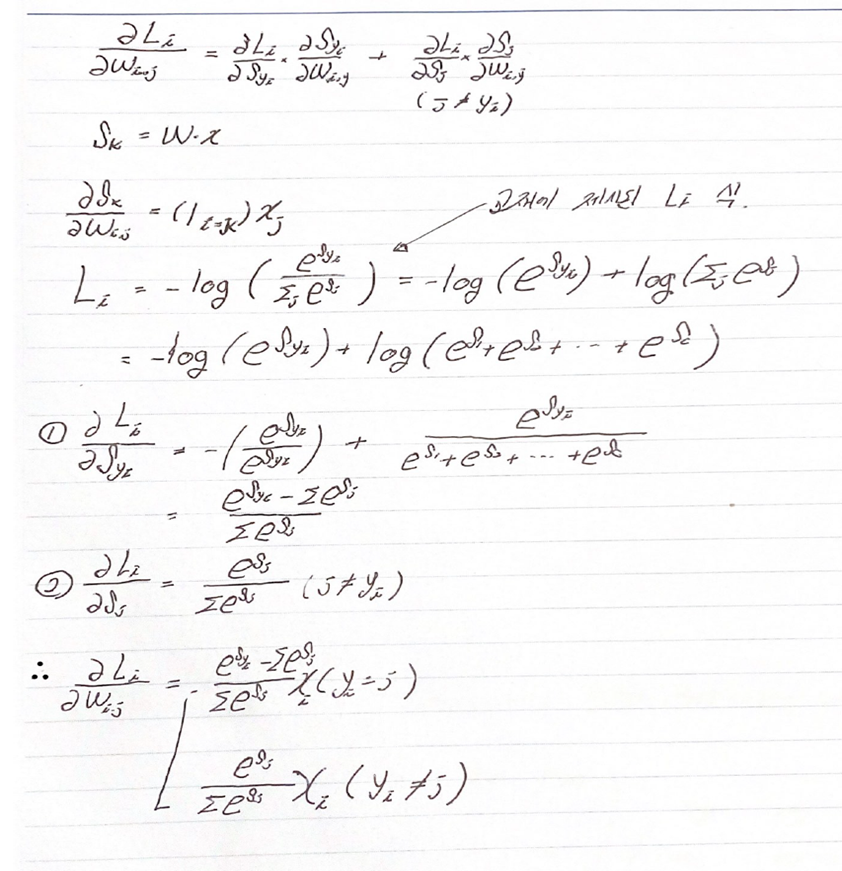 ∂Li/∂Wi,j = ∂Li/∂Syi × ∂Syi/∂Wi,j + ∂Li/∂Sj × ∂Sj/∂Wi,j
(j ≠ yi)
Sk = W·x
∂Sk/∂Wi,j = (1 i=k) xj
교재에 제시된 Li 식.
Li = -log(e^Syi / Σj e^Sj) = -log(e^Syi) + log(Σj e^Sj)
= -log(e^Syi) + log(e^S1 + e^S2 + ··· + e^Sc)
① ∂Li/∂Syi = -(e^Syi / e^Syi) + e^Syi / (e^S1 + e^S2 + ··· + e^Sc)
= (e^Syi - Σe^Sj) / Σe^Sj
② ∂Li/∂Sj = e^Sj / Σe^Sj (j ≠ yi)
∴ ∂Li/∂Wi,j = (e^Syi - Σe^Sj) / Σe^Sj xi (yi = j)
e^Sj / Σe^Sj xi (yi ≠ j)